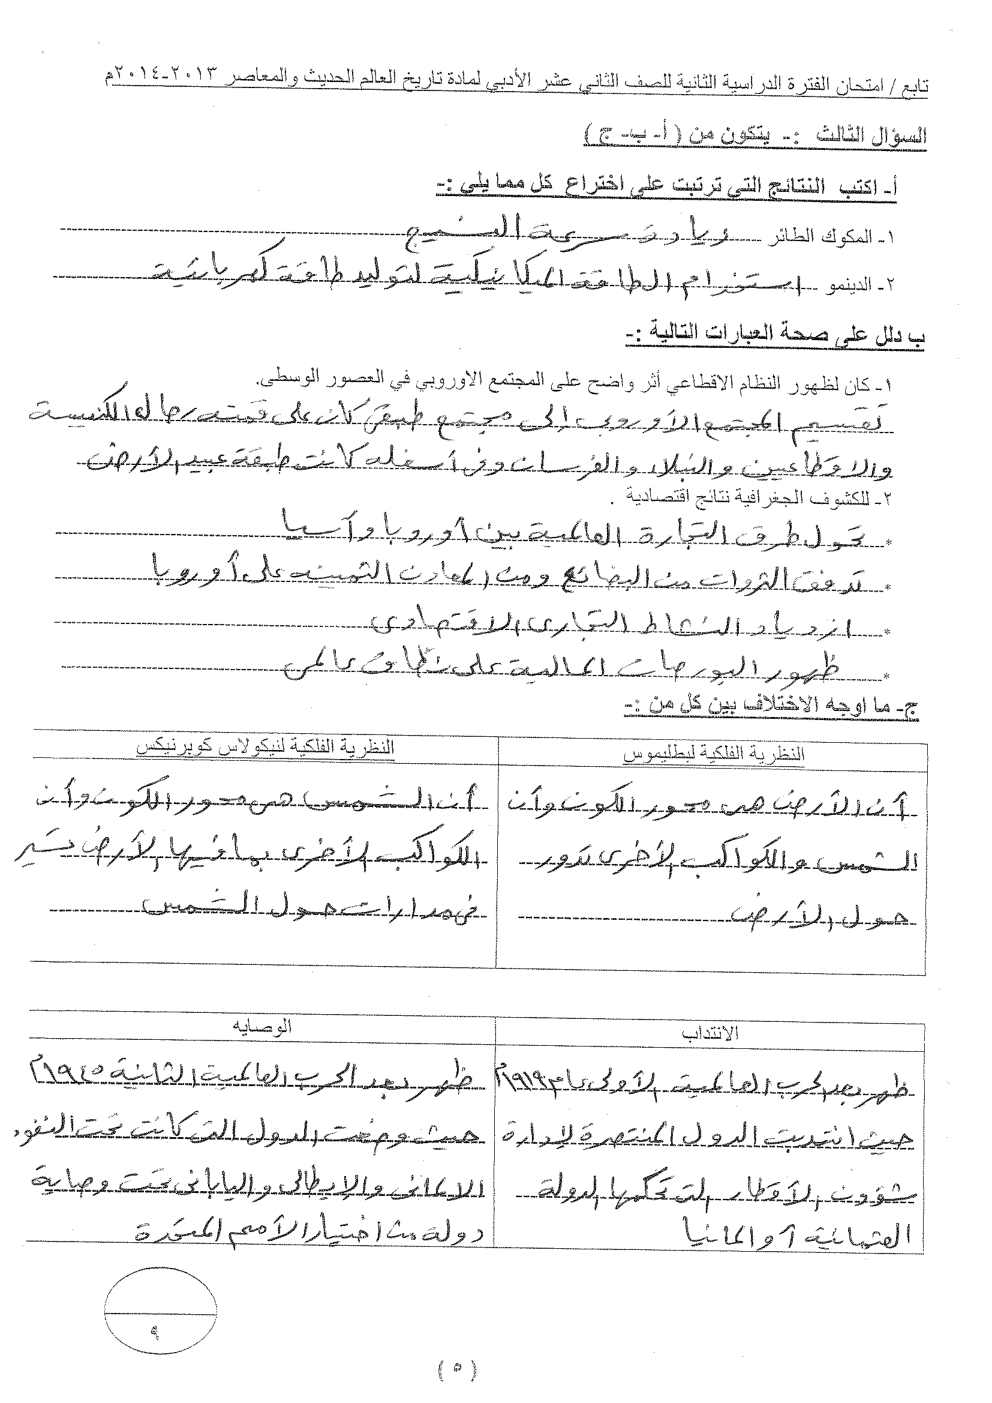 تابع / امتحان الفترة الدراسية الثانية للصف الثاني عشر الأدبي لمادة تاريخ العالم الحديث والمعاصر ٢٠١٣-٢٠١٤م
السؤال الثالث :- يتكون من ( أ- ب- ج )
أ- اكتب النتائج التي ترتبت على اختراع كل مما يلي :-
١- المكوك الطائر زيادة سرعة النسيج
٢- الدينمو استخدام الطاقة الميكانيكية لتوليد طاقة كهربائية
ب دلل على صحة العبارات التالية :-
١- كان لظهور النظام الاقطاعي أثر واضح على المجتمع الاوروبي في العصور الوسطى.
تقسيم المجتمع الأوروبي إلى مجتمع طبقي كان على قمته رجال الكنيسة
والاقطاعيين والنبلاء والفرسان وفي أسفله كانت طبقة عبيد الأرض
٢- للكشوف الجغرافية نتائج اقتصادية .
* تحول طرق التجارة العالمية بين أوروبا وآسيا
* تدفق الثروات من البضائع ومن المعادن الثمينة على أوروبا
* ازدياد النشاط التجاري الاقتصادي
* ظهور البورصات المالية على نطاق عالمي
ج- ما اوجه الاختلاف بين كل من :-
النظرية الفلكية لبطليموس
أن الأرض هي محور الكون وأن
الشمس والكواكب الأخرى تدور
حول الأرض
النظرية الفلكية لنيكولاس كوبرنيكس
أن الشمس هي محور الكون وأن
الكواكب الأخرى بما فيها الأرض تسير
في مدارات حول الشمس
الانتداب
ظهر بعد الحرب العالمية الأولى عام ١٩١٩م
حيث انتدبت الدول المنتصرة لإدارة
شؤون الأقطار التي تحكمها الدولة
العثمانية أو المانيا
الوصايه
ظهر بعد الحرب العالمية الثانية ١٩٤٥م
حيث وضعت الدول التي كانت تحت النفوذ
الالماني والإيطالي والياباني تحت وصاية
دولة من اختيار الأمم المتحدة
٩
( ٥ )